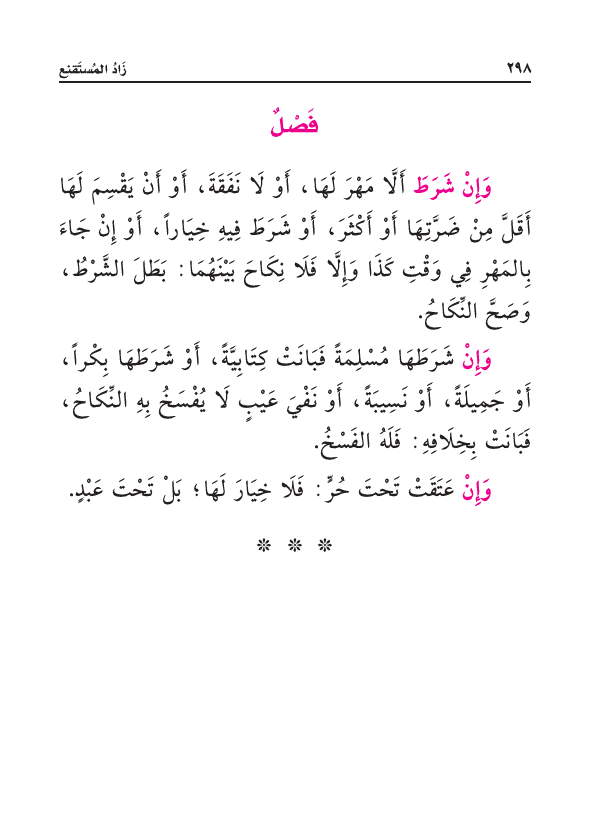 ٢٩٨ زَادُ المُستَقنِع
فَصْلٌ
وَإِنْ شَرَطَ أَلَّا مَهْرَ لَهَا، أَوْ لَا نَفَقَةَ، أَوْ أَنْ يَقْسِمَ لَهَا
أَقَلَّ مِنْ ضَرَّتِهَا أَوْ أَكْثَرَ، أَوْ شَرَطَ فِيهِ خِيَاراً، أَوْ إِنْ جَاءَ
بِالمَهْرِ فِي وَقْتِ كَذَا وَإِلَّا فَلَا نِكَاحَ بَيْنَهُمَا: بَطَلَ الشَّرْطُ،
وَصَحَّ النِّكَاحُ.
وَإِنْ شَرَطَهَا مُسْلِمَةً فَبَانَتْ كِتَابِيَّةً، أَوْ شَرَطَهَا بِكْراً،
أَوْ جَمِيلَةً، أَوْ نَسِيبَةً، أَوْ نَفْيَ عَيْبٍ لَا يُفْسَخُ بِهِ النِّكَاحُ،
فَبَانَتْ بِخِلَافِهِ: فَلَهُ الفَسْخُ.
وَإِنْ عَتَقَتْ تَحْتَ حُرٍّ: فَلَا خِيَارَ لَهَا؛ بَلْ تَحْتَ عَبْدٍ.